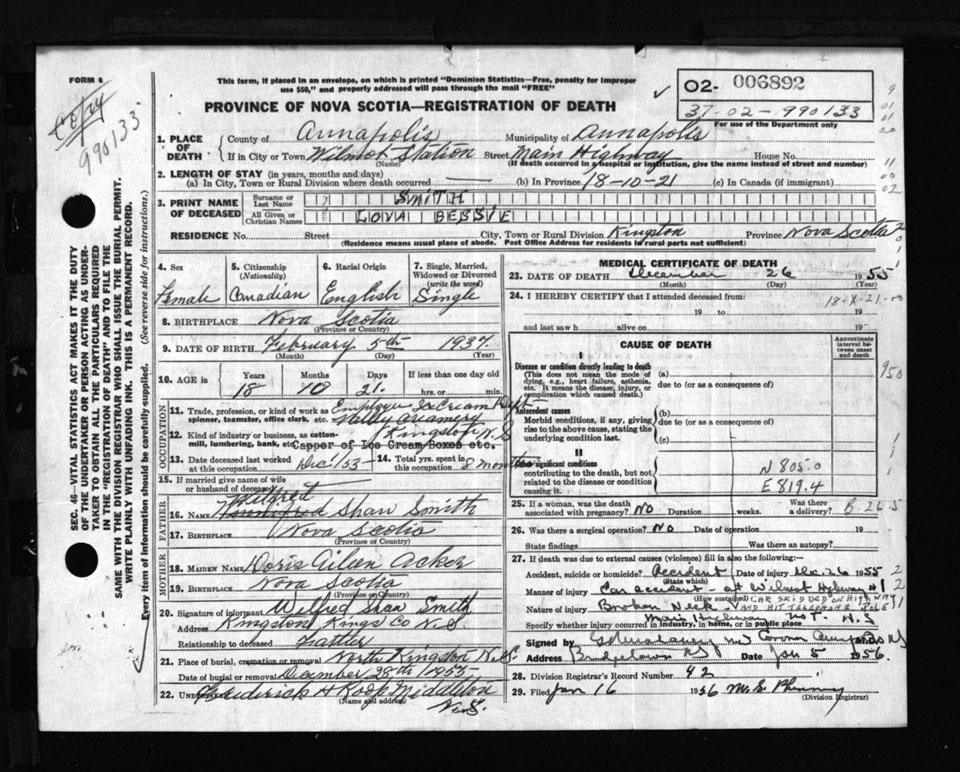 FORM 6
Copy
990133
This form, if placed in an envelope, on which is printed "Dominion Statistics—Free, penalty for improper
use $50," and properly addressed will pass through the mail "FREE"
PROVINCE OF NOVA SCOTIA—REGISTRATION OF DEATH
02- 006892
37-02-990133
For use of the Department only
SEC. 46—VITAL STATISTICS ACT MAKES IT THE DUTY
OF THE UNDERTAKER OR PERSON ACTING AS UNDER-
TAKER TO OBTAIN ALL THE PARTICULARS REQUIRED
IN THE "REGISTRATION OF DEATH" AND TO FILE THE
SAME WITH THE DIVISION REGISTRAR WHO SHALL ISSUE THE BURIAL PERMIT.
WRITE PLAINLY WITH UNFADING INK. THIS IS A PERMANENT RECORD.
Every item of information should be carefully supplied. (See reverse side for instructions.)
1. PLACE OF DEATH County of Annapolis Municipality of Annapolis
If in City or Town Wilmot Station Street Main Highway House No.
(Name) (If death occurred in a hospital or institution, give the name instead of street and number)
2. LENGTH OF STAY (in years, months and days)
(a) In City, Town or Rural Division where death occurred (b) In Province 18-10-21 (c) In Canada (if immigrant)
3. PRINT NAME OF DECEASED Surname or Last Name SMITH
All Given or Christian Names LOVA BESSIE
RESIDENCE No. Street City, Town or Rural Division Kingston Province Nova Scotia
(Residence means usual place of abode. Post Office Address for residents in rural parts not sufficient)
4. Sex 5. Citizenship (Nationality) 6. Racial Origin 7. Single, Married, Widowed or Divorced (write the word)
Female Canadian English Single
8. BIRTHPLACE Nova Scotia
(Province or Country)
9. DATE OF BIRTH February 5th 1937
(Month) (Day) (Year)
10. AGE in Years Months Days If less than one day old
18 10 21 hrs. or min.
OCCUPATION
11. Trade, profession, or kind of work as spinner, teamster, office clerk, etc. Employee Ice Cream Dept
Valley Creamery
12. Kind of industry or business, as cotton-mill, lumbering, bank, etc. Kingston N.S
Capper of Ice Cream Boxes etc.
13. Date deceased last worked at this occupation Dec./53 14. Total yrs. spent in this occupation 8 months
15. If married give name of wife or husband of deceased
FATHER
Wilfred
16. NAME Shaw Smith
17. BIRTHPLACE Nova Scotia
(Province or Country)
MOTHER
18. MAIDEN NAME Doris Aileen Acker
19. BIRTHPLACE Nova Scotia
(Province or Country)
20. Signature of informant Wilfred Shaw Smith
Address Kingston Kings Co N.S.
Relationship to deceased Father
21. Place of burial, cremation or removal North Kingston N.S.
Date of burial or removal December 28th 1955
22. Undertaker Frederick H Roop Middleton
(Name and address) N.S.
MEDICAL CERTIFICATE OF DEATH
23. DATE OF DEATH December 26 1955
(Month) (Day)
24. I HEREBY CERTIFY that I attended deceased from: 18-X-21-00
19 to 19
and last saw h alive on 19
CAUSE OF DEATH
Approximate interval between onset and death
I
Disease or condition directly leading to death
(This does not mean the mode of dying, e.g., heart failure, asthenia, etc. It means the disease, injury, or complication which caused death.)
(a)
due to (or as a consequence of)
950
Antecedent causes
Morbid conditions, if any, giving rise to the above cause, stating the underlying condition last.
(b)
due to (or as a consequence of)
(c)
II
Other significant conditions
contributing to the death, but not related to the disease or condition causing it.
N 805.0
E 819.4
25. If a woman, was the death associated with pregnancy? NO Duration weeks. Was there a delivery?
26. Was there a surgical operation? No Date of operation 19
State findings Was there an autopsy?
27. If death was due to external causes (violence) fill in also the following:—
Accident, suicide or homicide? Accident Date of injury Dec. 26 1955
(State which)
Manner of injury Car accident - at Wilmot Highway #1
(How sustained) CAR SKIDDED ON HIGHWAY
Nature of injury Broken Neck - AND HIT TELEPHONE POLE
Specify whether injury occurred in industry, in home, or in public place. Main Highway N.S
Signed by M.D. Coroner
Address Bridgetown NS Date Jan 5 1956
28. Division Registrar's Record Number 42
29. Filed Jan 16 1956
(Division Registrar)